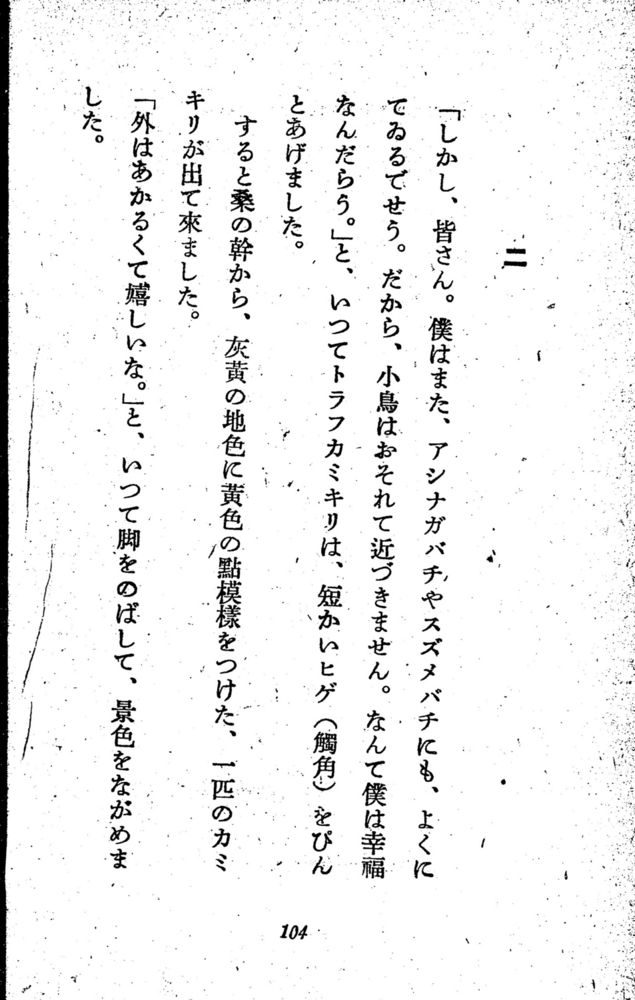 二
「しかし、皆さん。僕はまた、アシナガバチやスズメバチにも、よくに
てゐるでせう。だから、小鳥はおそれて近づきません。なんて僕は幸福
なんだらう。」と、いつてトラフカミキリは、短かいヒゲ（觸角）をぴん
とあげました。
すると桑の幹から、灰黄の地色に黃色の點模樣をつけた、一匹のカミ
キリが出て來ました。
「外はあかるくて嬉しいな。」と、いつて脚をのばして、景色をながめま
した。
104